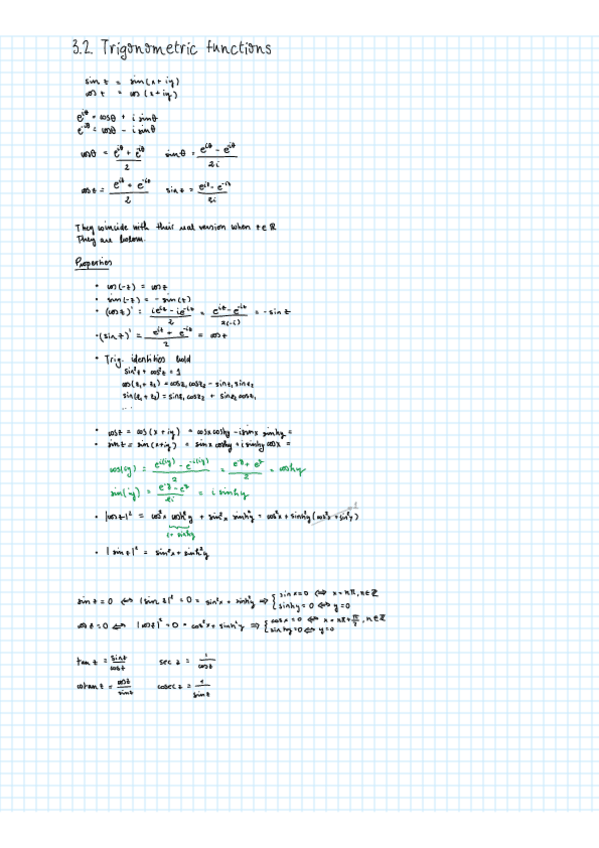 3.2. Trigonometric functions
sin z = sin(x+iy)
cos z = cos(x+iy)
e^{iθ} = cosθ + i sinθ
e^{-iθ} = cosθ - i sinθ
cosθ = (e^{iθ} + e^{-iθ})/2    sinθ = (e^{iθ} - e^{-iθ})/2i
cos z = (e^{iz} + e^{-iz})/2    sin z = (e^{iz} - e^{-iz})/2i
They coincide with their real version when z∈ℝ
They are holom.
Properties
• cos(-z) = cos z
• sin(-z) = -sin(z)
• (cos z)' = (ie^{iz} - ie^{-iz})/2 = (e^{iz} - e^{-iz})/2(-i) = -sin z
• (sin z)' = (e^{iz} + e^{-iz})/2 = cos z
• Trig. identities hold
sin²z + cos²z = 1
cos(z₁+z₂) = cos z₁ cos z₂ - sin z₁ sin z₂
sin(z₁+z₂) = sin z₁ cos z₂ + sin z₂ cos z₁
...
• cos z = cos(x+iy) = cosx coshy - i sinx sinhy =
• sin z = sin(x+iy) = sinx coshy + i sinhy cosx =
cos(iy) = (e^{i(iy)} - e^{-i(iy)})/2 = (e^{-y} + e^{y})/2 = coshy
sin(iy) = (e^{-y} - e^{y})/2i = i sinhy
• |cos z|² = cos²x cosh²y + sin²x sinh²y = cos²x + sinh²y (cos²x + sin²x)
1+sinh²y
• |sin z|² = sin²x + sinh²y
sin z = 0 ⟺ |sin z|² = 0 = sin²x + sinh²y ⟹ { sin x = 0 ⟺ x = nπ, n∈ℤ
sinhy = 0 ⟺ y = 0
cos z = 0 ⟺ |cos z|² = 0 = cos²x + sinh²y ⟹ { cosx = 0 ⟺ x = nπ + π/2, n∈ℤ
sinhy = 0 ⟺ y = 0
tan z = sin z/cos z    sec z = 1/cos z
cotan z = cos z/sin z    cosec z = 1/sin z